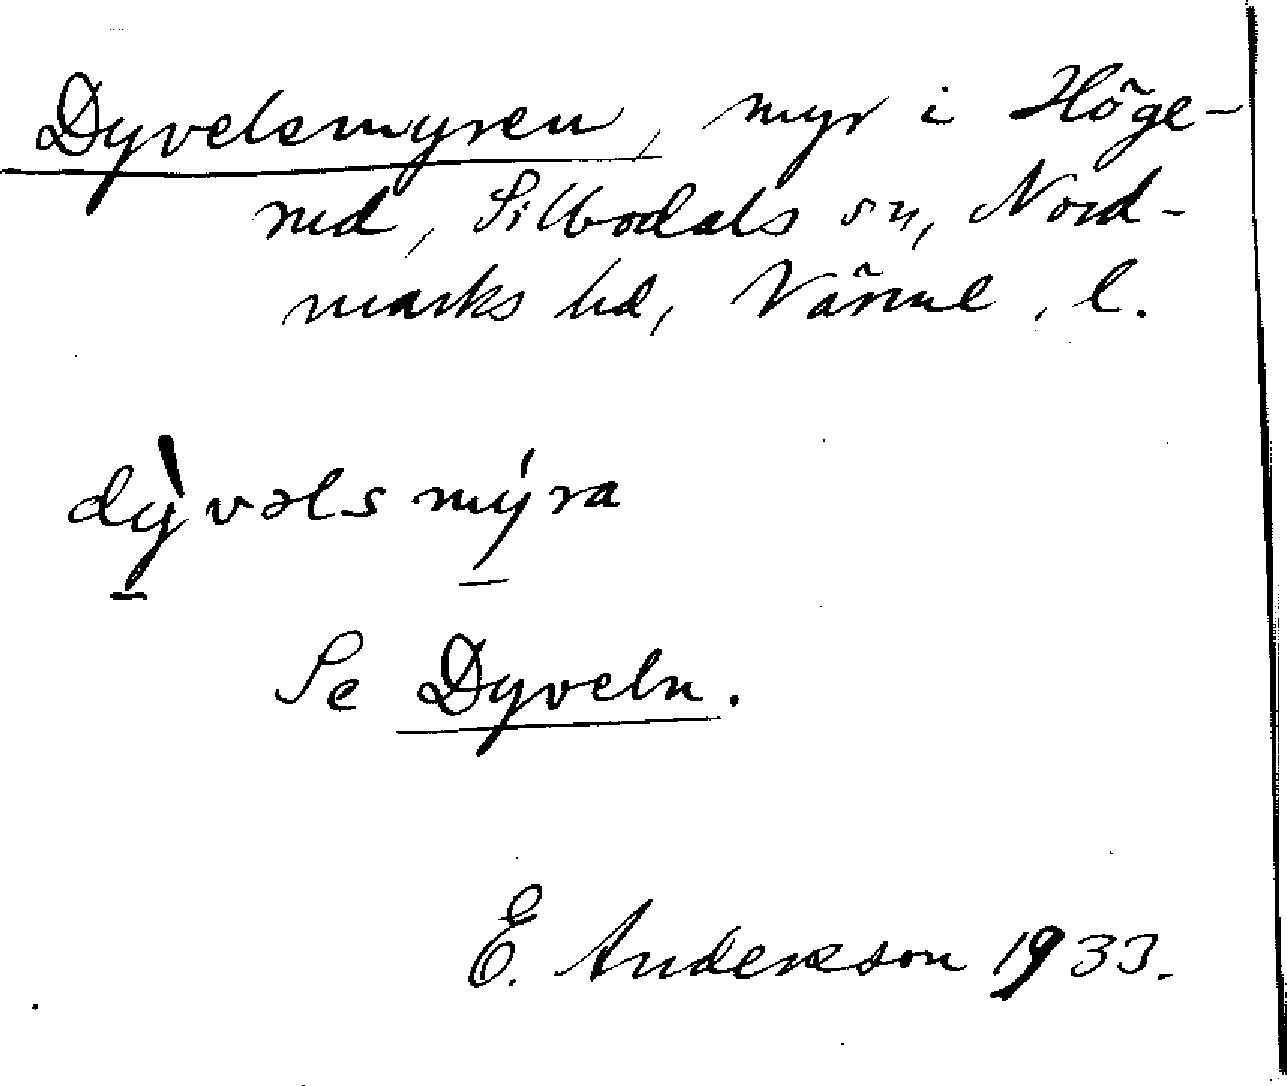 Dyvelsmyren, myr i Höge-
rud, Silbodals sn, Nord-
marks hd, Värml. l.
dỳ̠vəlsmý̠ra
Se Dyveln.
E. Anderson 1933.